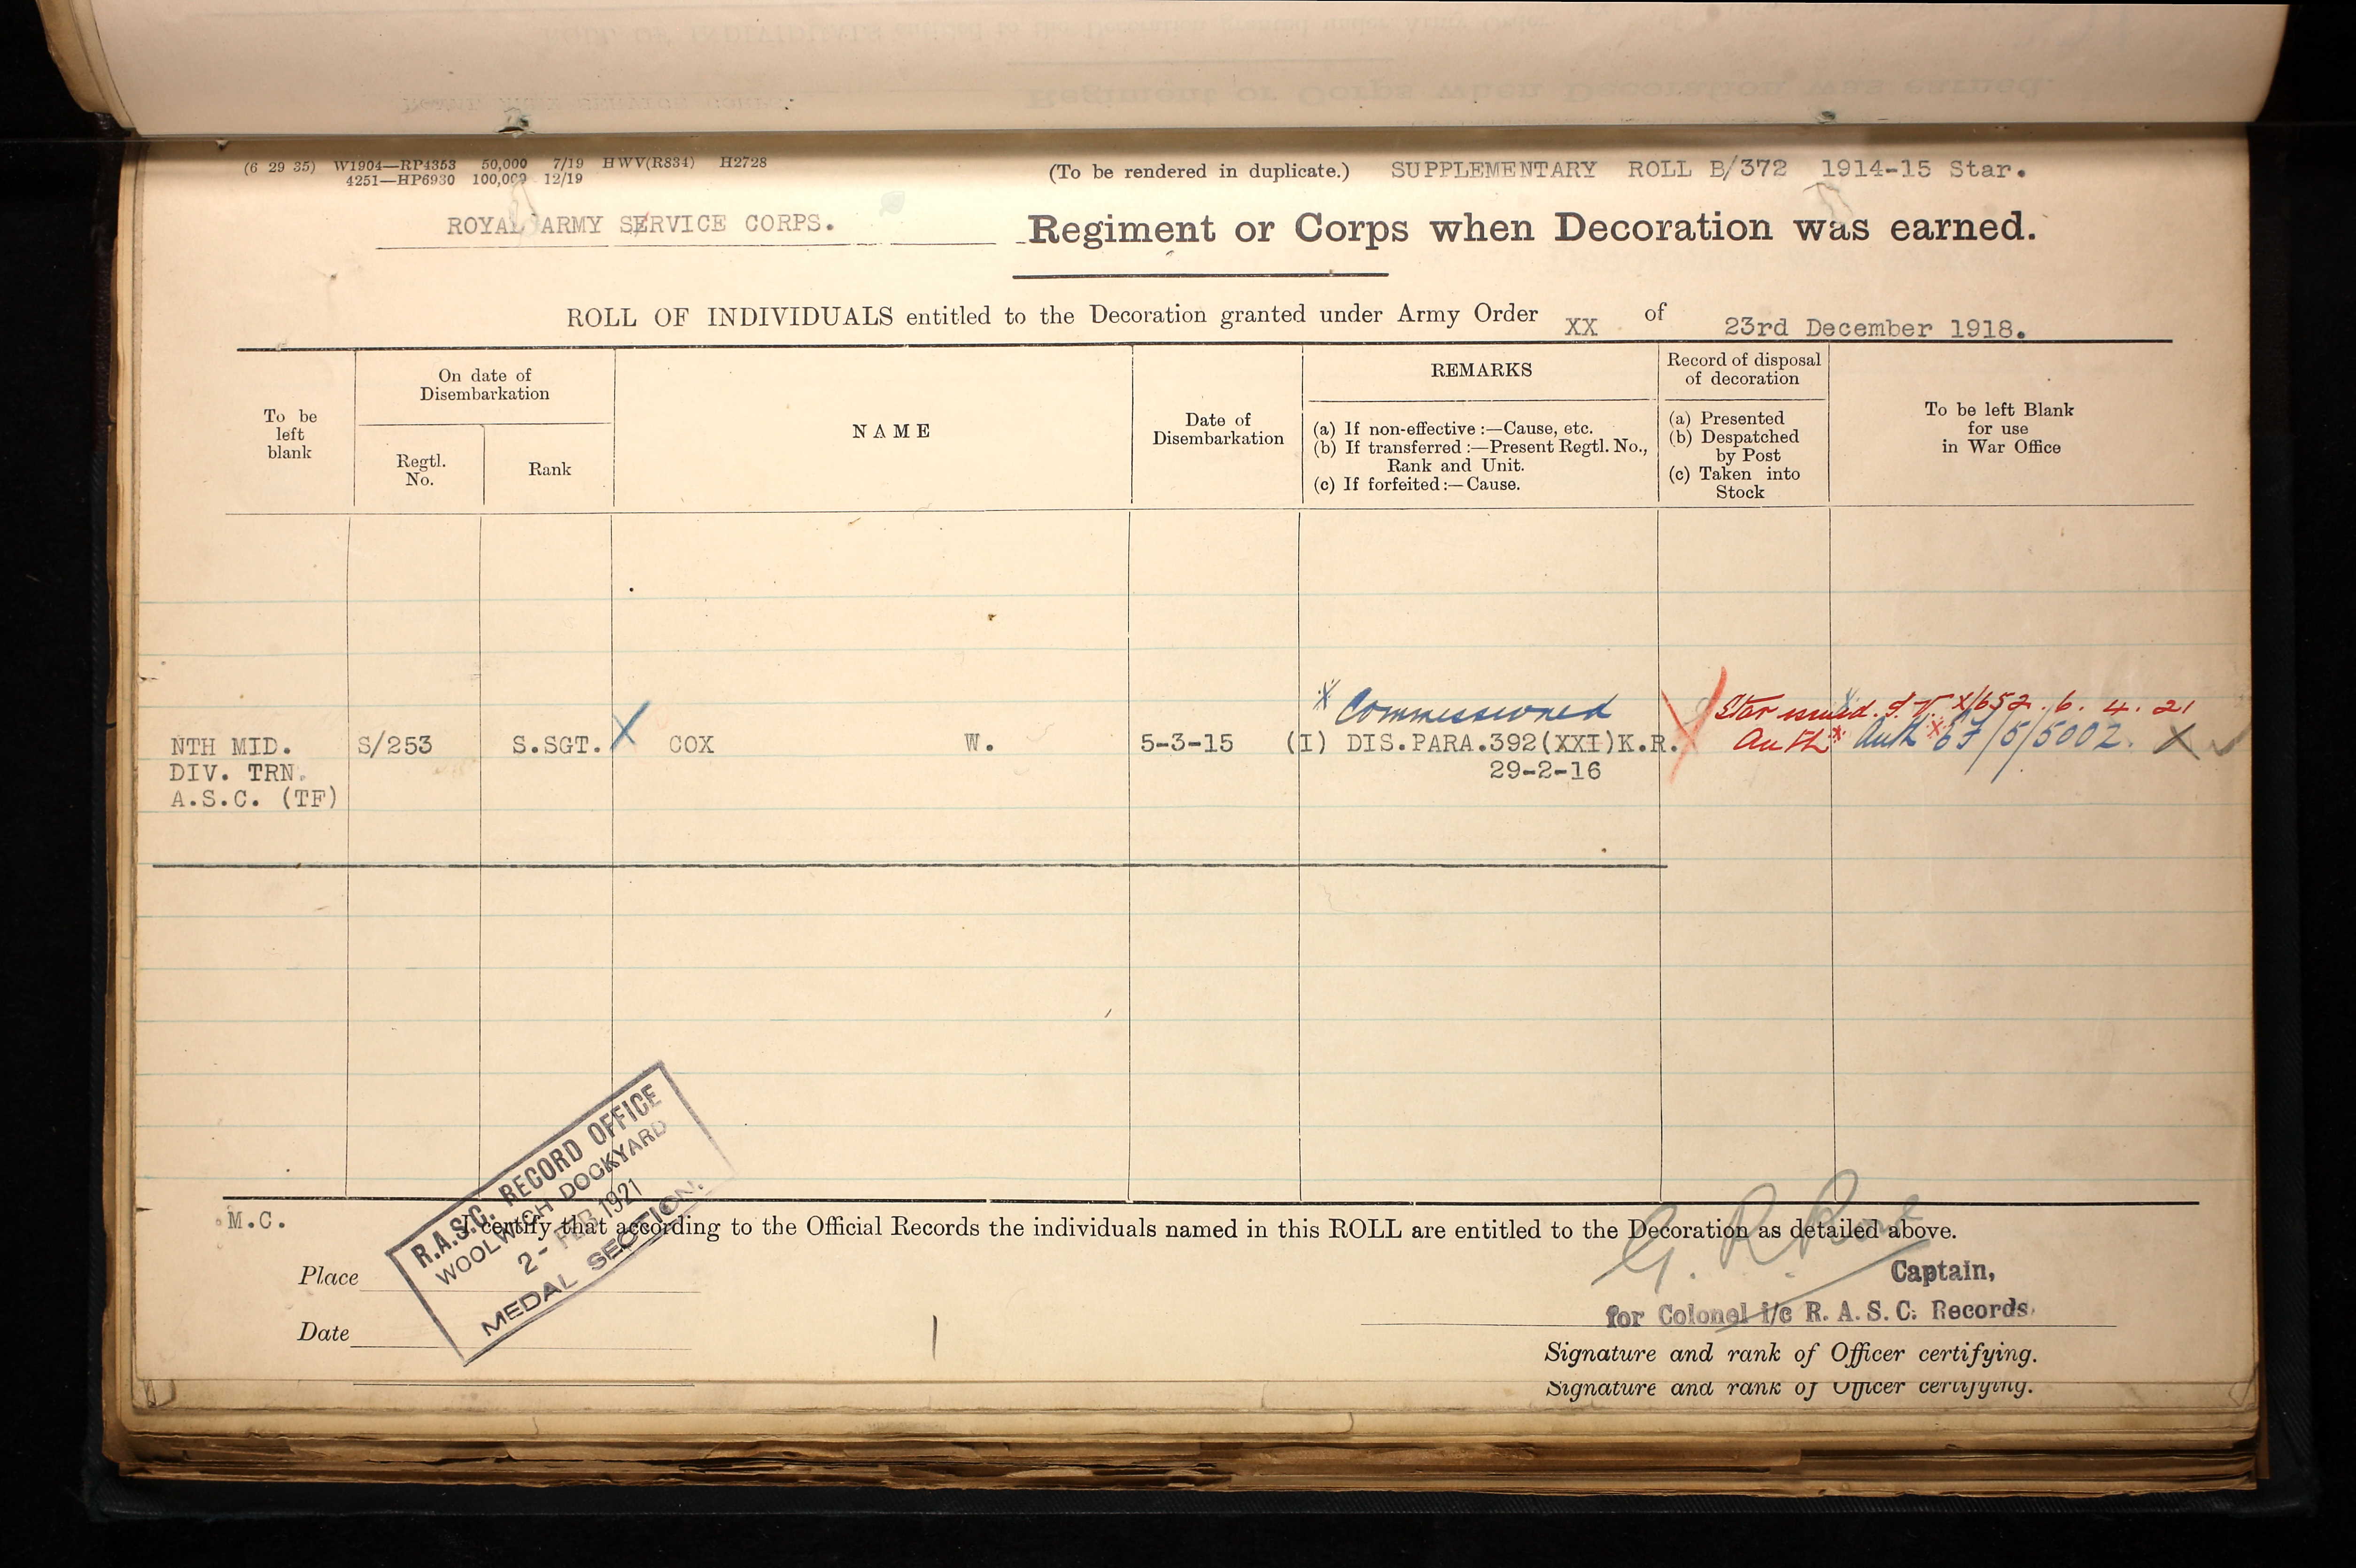 (6 29 35) W1904—RP4353 50,000 7/19 HWV(R834) H2728
4251—HP6930 100,000 12/19
(To be rendered in duplicate.) SUPPLEMENTARY ROLL B/372 1914-15 Star.
ROYAL ARMY SERVICE CORPS. Regiment or Corps when Decoration was earned.
ROLL OF INDIVIDUALS entitled to the Decoration granted under Army Order XX of 23rd December 1918.
To be
left
blank
On date of
Disembarkation
Regtl.
No.
Rank
NAME
Date of
Disembarkation
REMARKS
(a) If non-effective :—Cause, etc.
(b) If transferred :—Present Regtl. No.,
Rank and Unit.
(c) If forfeited :—Cause.
Record of disposal
of decoration
(a) Presented
(b) Despatched
by Post
(c) Taken into
Stock
To be left Blank
for use
in War Office
X Commissioned
Star issued. I.V. X/652. 6. 4. 21
NTH MID. S/253 S.SGT. X COX W. 5-3-15 (I) DIS.PARA.392(XXI)K.R. Auth Auth 67/5/5002. X
DIV. TRN. 29-2-16
A.S.C. (TF)
R.A.S.C. RECORD OFFICE
WOOLWICH DOCKYARD
2- FEB 1921
MEDAL SECTION.
M.C. I certify that according to the Official Records the individuals named in this ROLL are entitled to the Decoration as detailed above.
Place
Captain,
for Colonel i/c R. A. S. C. Records.
Date
Signature and rank of Officer certifying.
Signature and rank of Officer certifying.